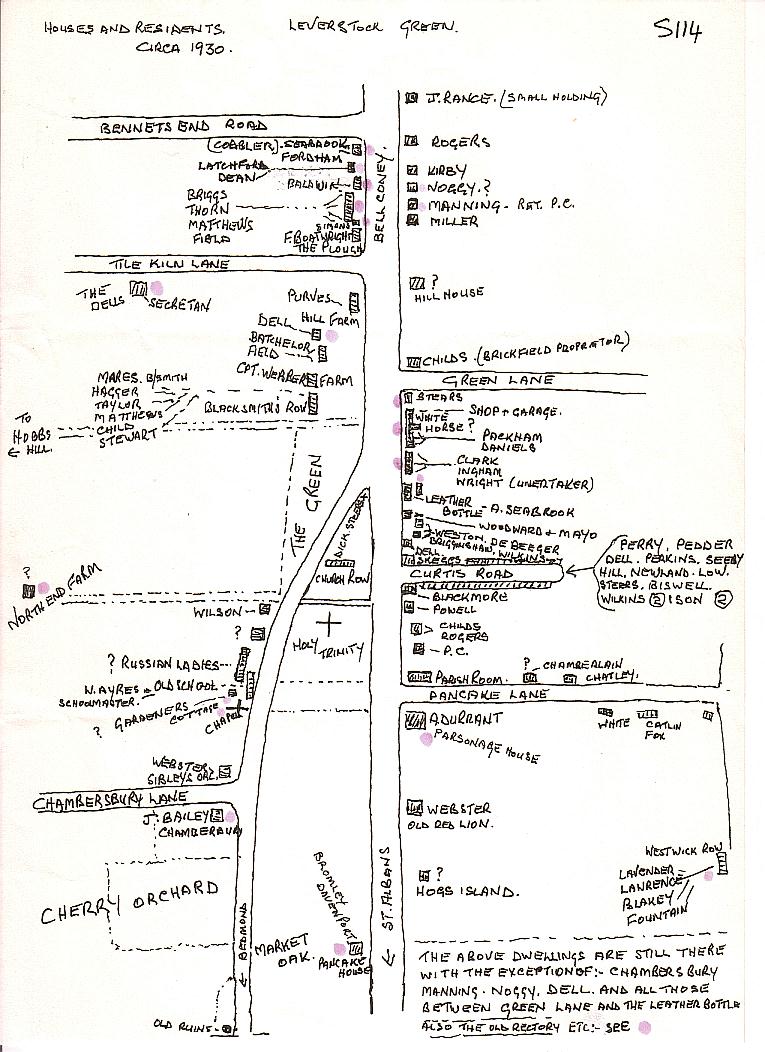 HOUSES AND RESIDENTS.
CIRCA 1930.
LEVERSTOCK GREEN.
S114
J. RANCE. (SMALL HOLDING)
BENNETS END ROAD
(COBBLER). SEABROOK
FORDHAM
LATCHFORD
DEAN
BALDWIN
BRIGGS
THORN
MATTHEWS
FIELD
SIMONS
F. BOATWRIGHT
THE PLOUGH
BELLCONEY.
ROGERS
KIRBY
NOGGY. ?
MANNING - RET. P.C.
MILLER
TILE KILN LANE
THE DELLS
SECRETAN
PURVES
HILL FARM
DELL
BATCHELOR
FIELD
CPT. WEBBER
FARM
?
HILL HOUSE
CHILDS. (BRICKFIELD PROPRIETOR)
GREEN LANE
MARES. B/SMITH
HAGGER
TAYLOR
MATTHEWS
CHILD
STEWART
BLACKSMITHS ROW
TO
HOBBS
← HILL.
STEARS
WHITE - SHOP + GARAGE.
HORSE ?
PACKHAM
DANIELS
CLARK
INGHAM
WRIGHT (UNERTAKER)
LEATHER
BOTTLE - A. SEABROOK
WOODWARD + MAYO
WESTON. DE BEEGER
BRIGGINSHAW, WILKINS
DELL
SKEGGS
CURTIS ROAD
PERRY, PEDDER
DELL, PERKINS, SEEBY
HILL, NEWLAND. LOW.
STEERS, BISWELL.
WILKINS (2) ISON (2)
THE GREEN
DICK STEERS
CHURCH ROW
?
NORTH END FARM
WILSON
?
HOLY
TRINITY
BLACKMORE
POWELL
CHILDS
ROGERS
P.C.
? RUSSIAN LADIES
N. AYRES
OLD SCHOOL
SCHOOLMASTER.
? GARDENERS COTTAGE
CHAPEL
PARISH ROOM.
? CHAMBERLAIN
CHATLEY.
PANCAKE LANE
ADURRANT
PARSONAGE HOUSE
WHITE
CATLIN
FOX
WEBSTER
SIBLEYS ORC.
CHAMBERSBURY LANE
J. BAILEY
CHAMBERBURY
WEBSTER
OLD RED LION.
CHERRY ORCHARD
?
HOGS ISLAND.
WESTWICK ROW
LAVENDER
LAWRENCE
BLAKEY
FOUNTAIN
← BEDMOND
MARKET
OAK.
BROMLEY
DAVENPORT
PANCAKE
HOUSE
← ST. ALBANS
OLD RUINS
THE ABOVE DWELLINGS ARE STILL THERE
WITH THE EXCEPTION OF:- CHAMBERSBURY
MANNING. NOGGY. DELL. AND ALL THOSE
BETWEEN GREEN LANE AND THE LEATHER BOTTLE
ALSO THE OLD RECTORY ETC:- SEE